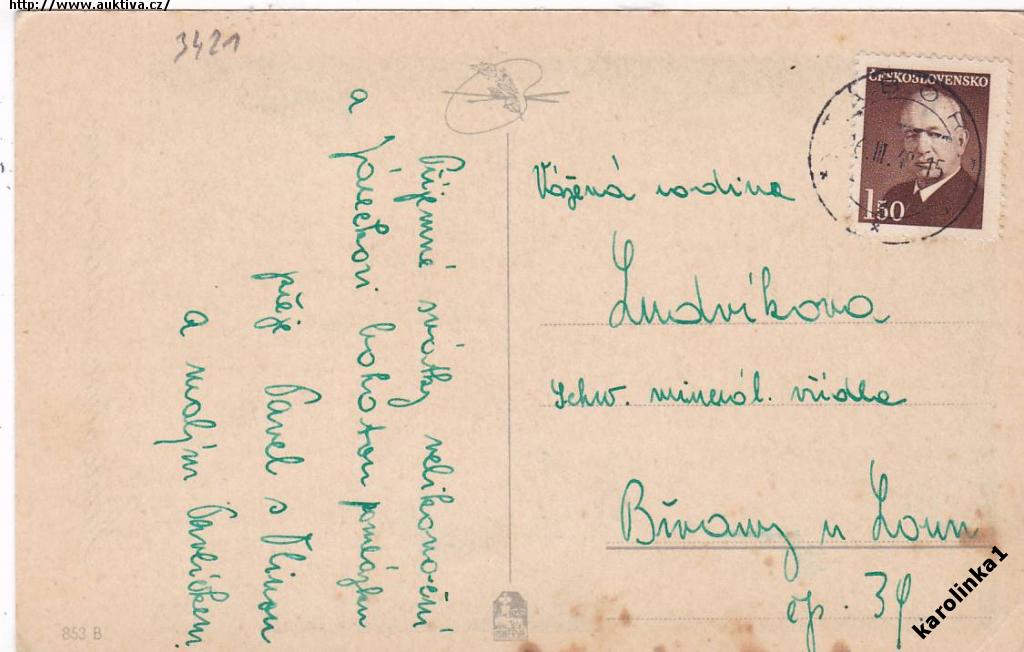 http://www.auktiva.cz/
3421
Příjemné svátky velikonoční
a Járečkovi bohatou pomlázku
přeje Pavel s Vlinou
a malým Pavlíčkem
ČESKOSLOVENSKO
1.50
TÁBOR
16.III.49-15
Vážená rodina
Ludvíkova
Schw. minerál. vřídla
Břvany u Loun
čp. 39.
853 B
karolinka1